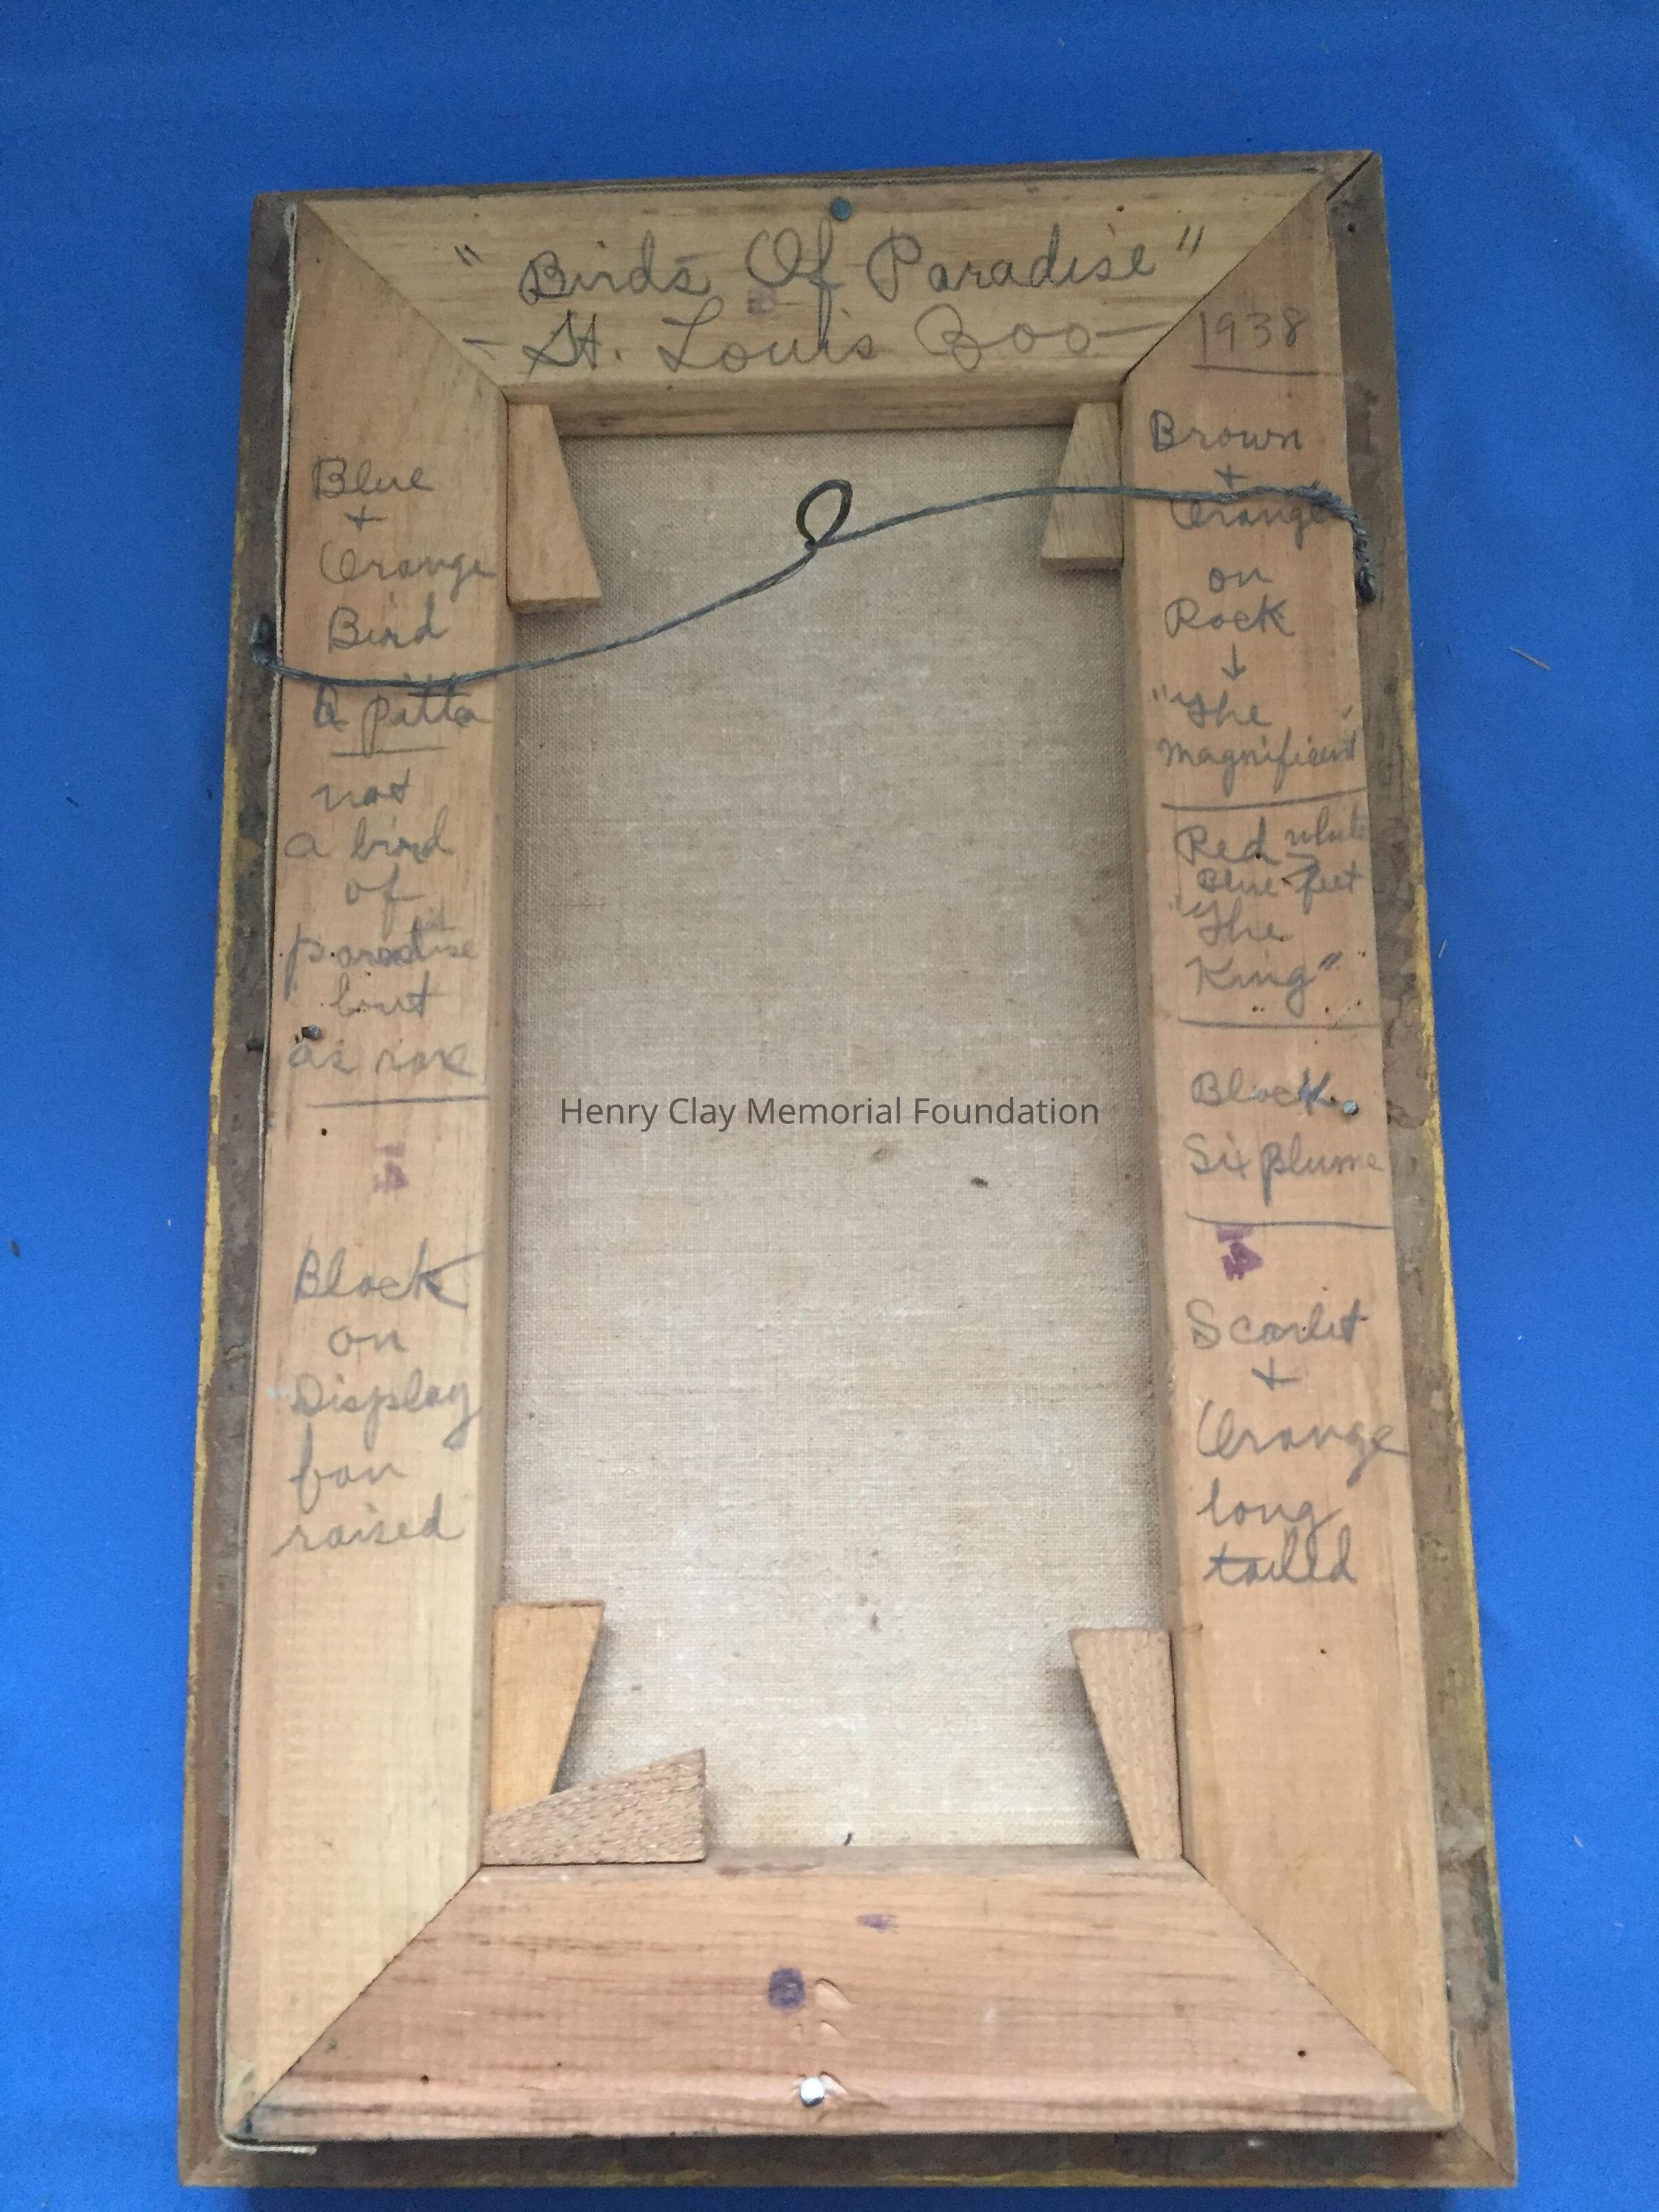 "Birds Of Paradise"
- St. Louis Zoo -
1938
Blue
+
Orange
Bird
A pitta
not
a bird
of
paradise
but
as rare
14
Black
on
Display
fan
raised
Brown
+
Orange
on
Rock
↓
"The
Magnificent"
Red white
Blue feet
"The
King"
Black
Six plume
14
Scarlet
+
Orange
long
tailed
Henry Clay Memorial Foundation